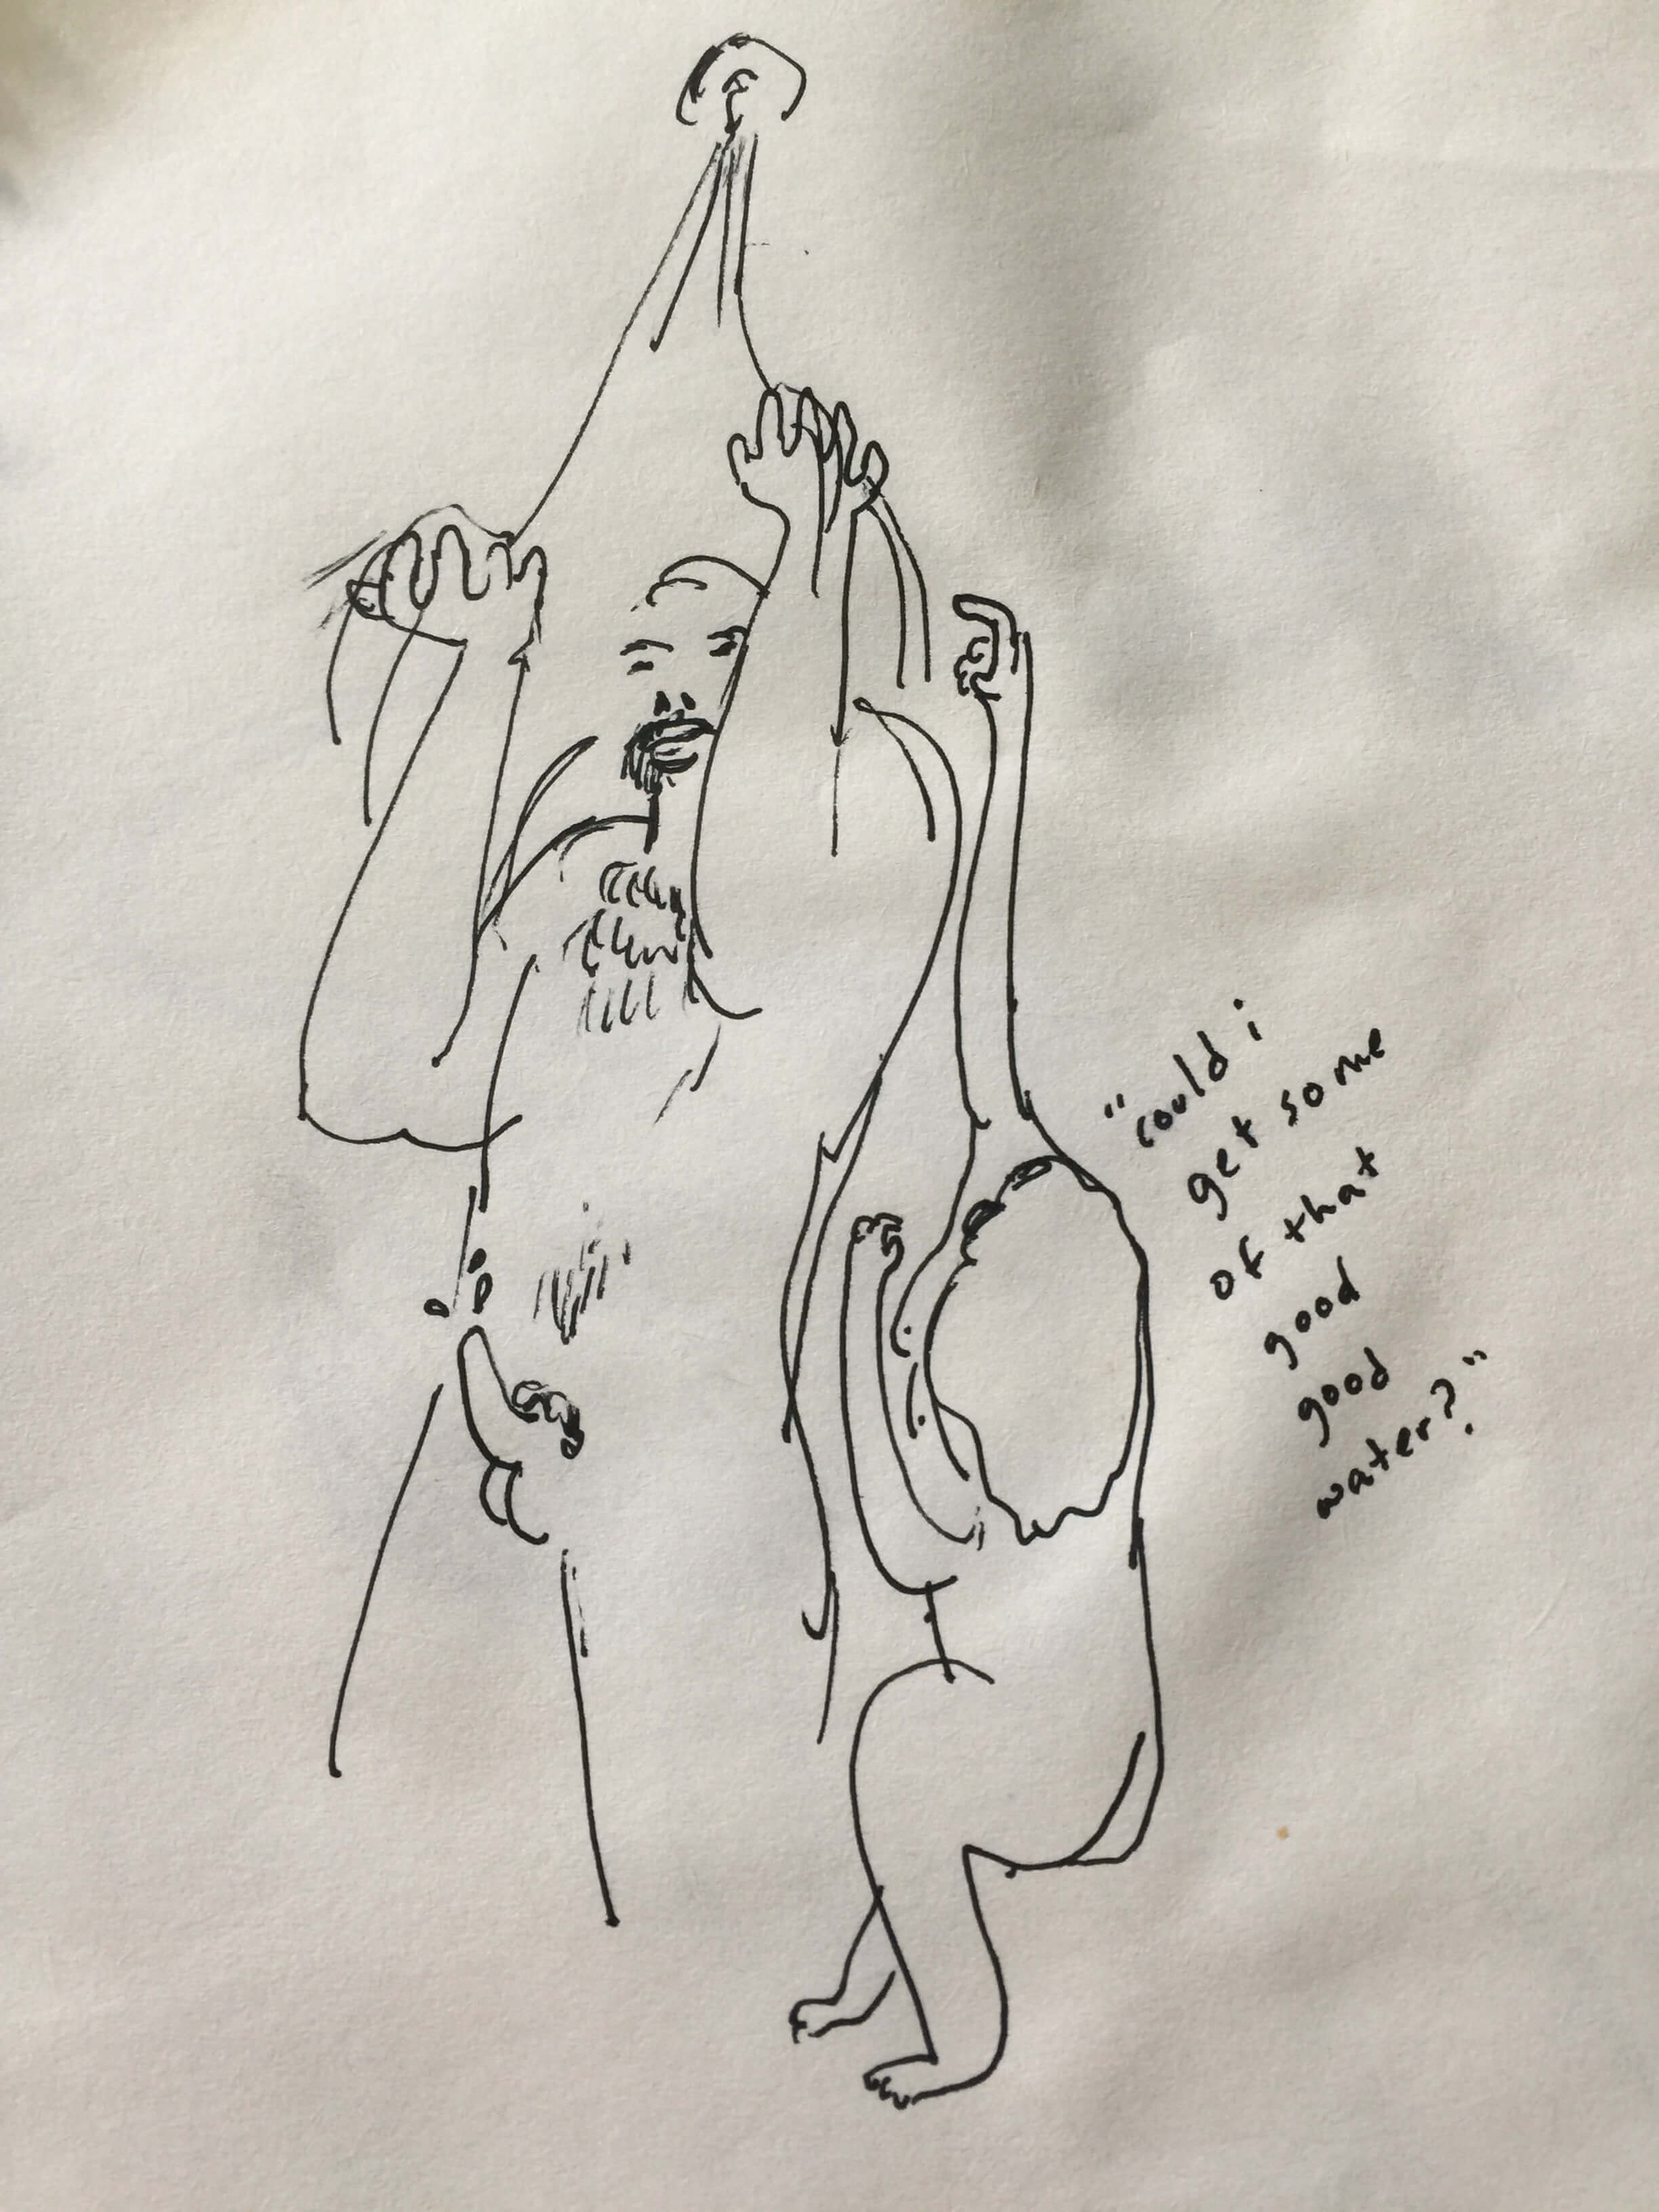 "could i
get some
of that
good
good
water?"